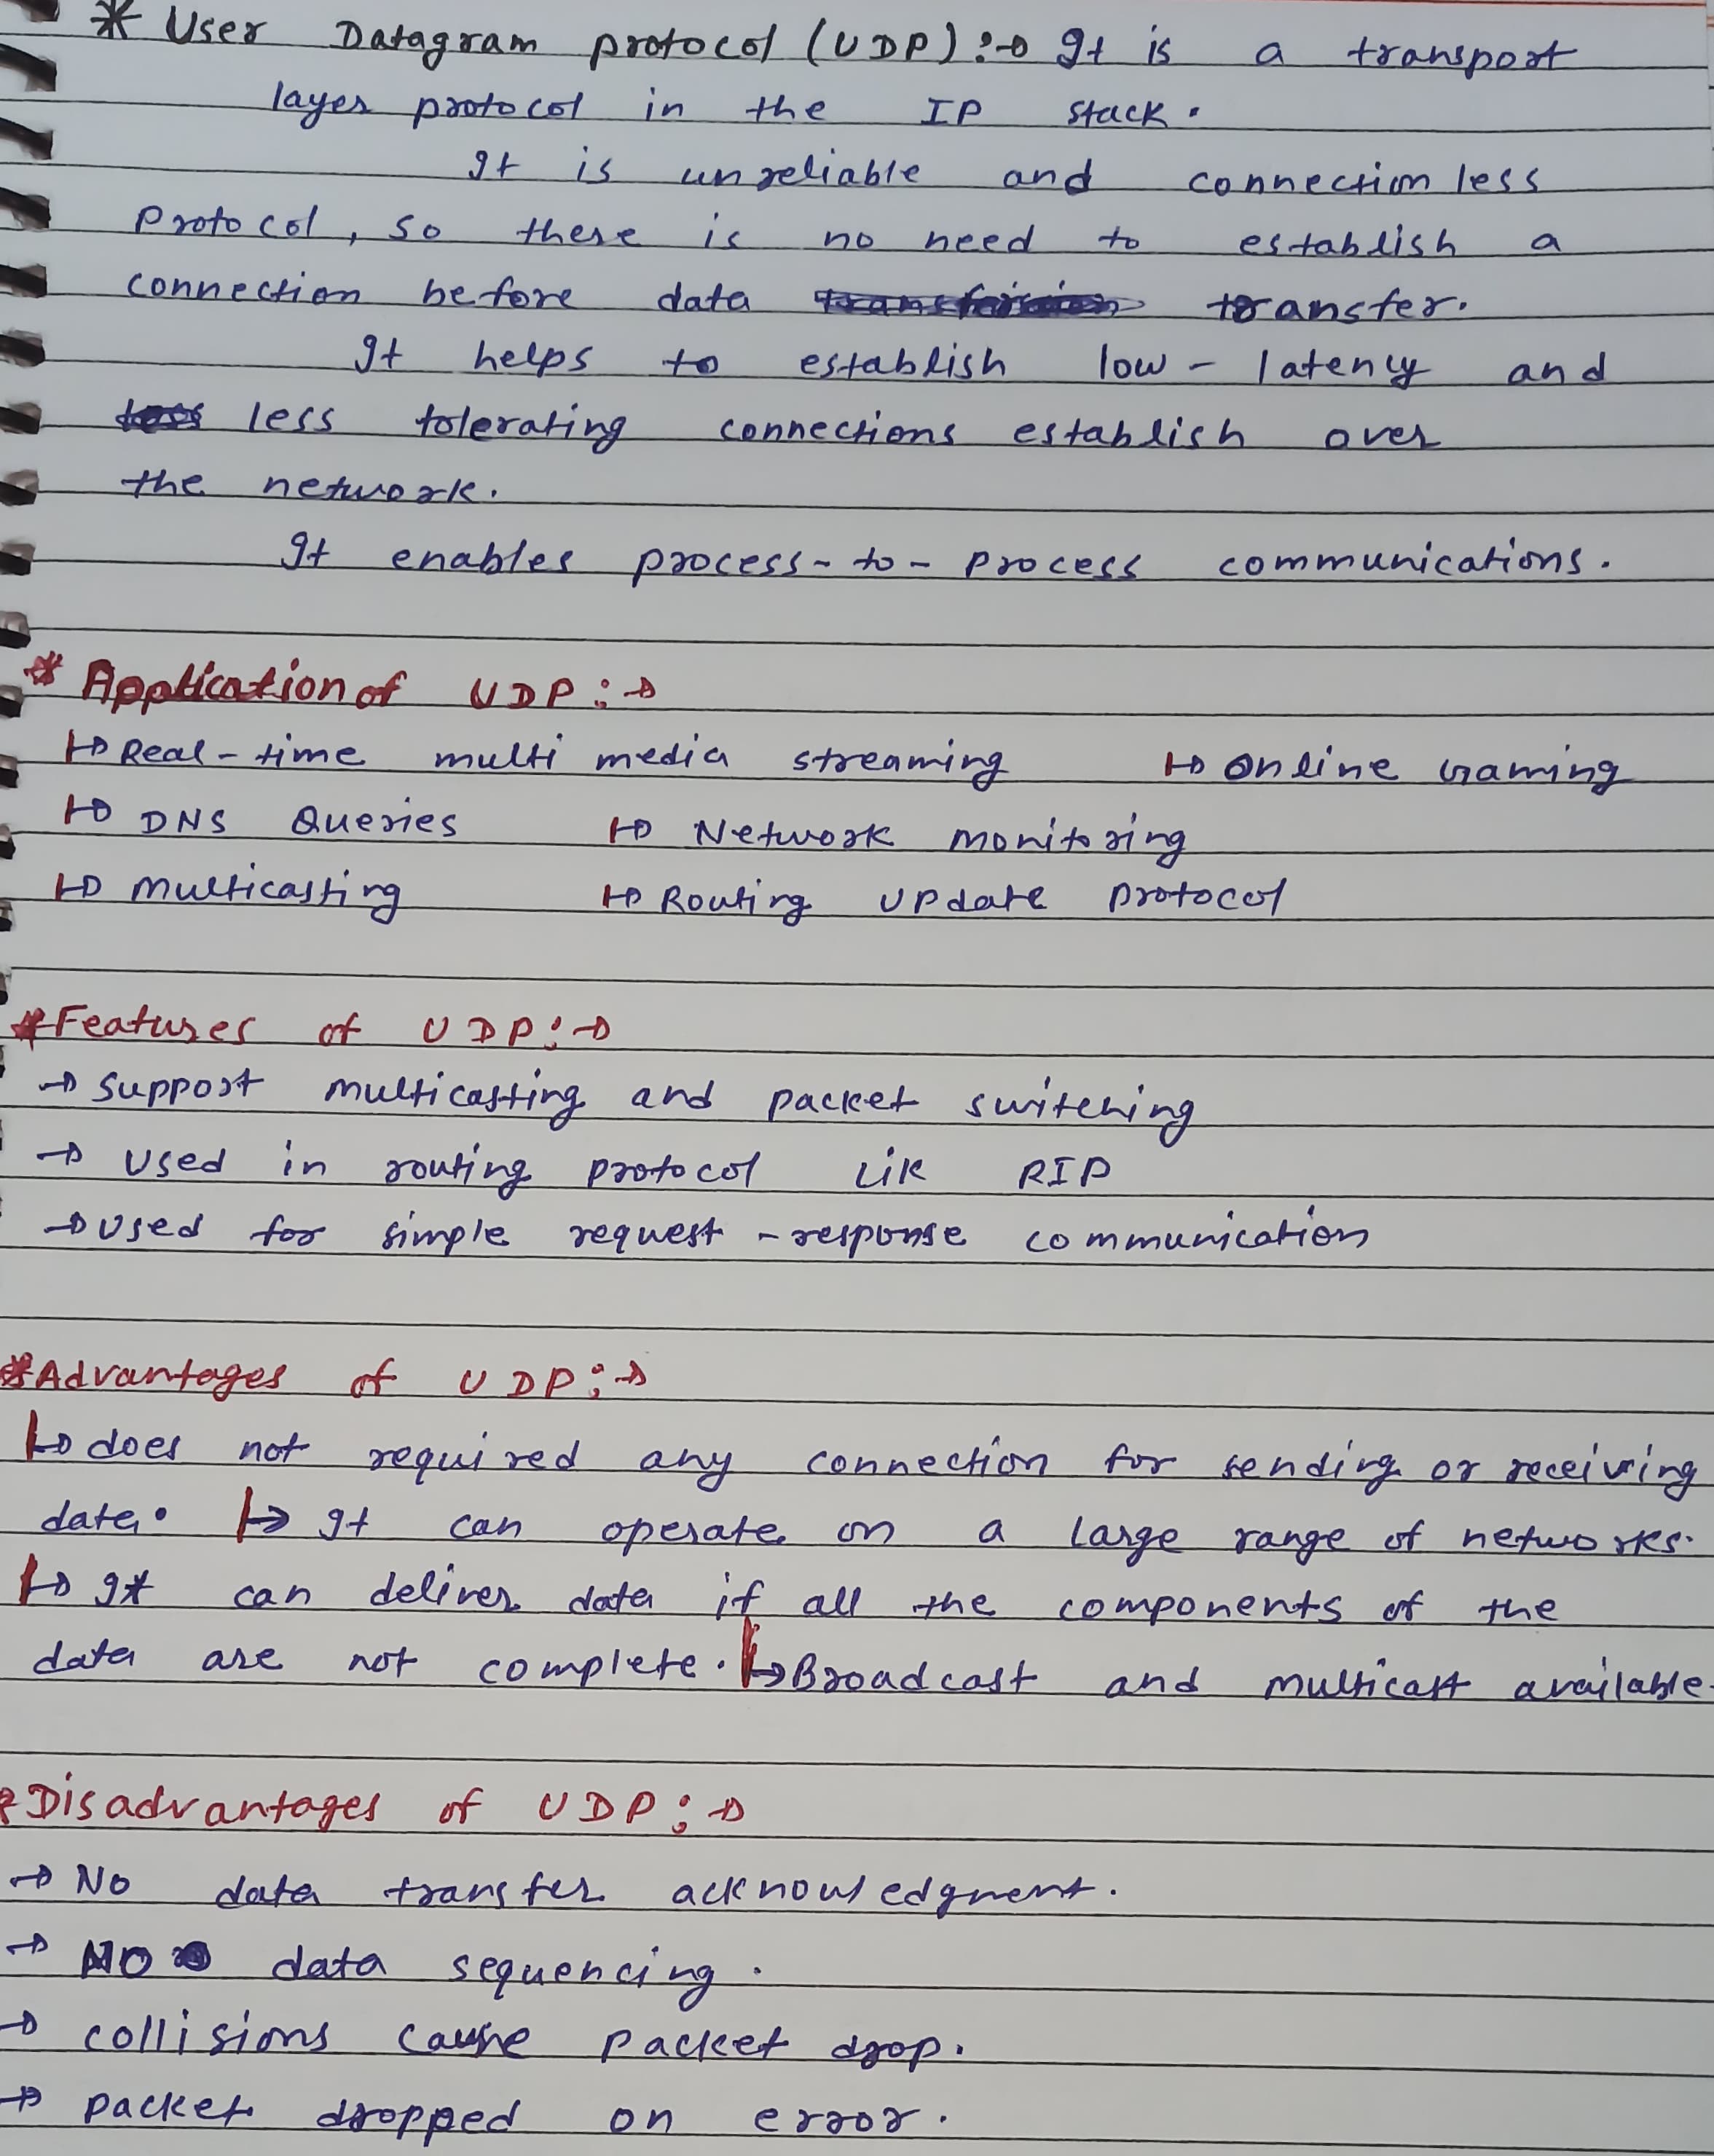 * User Datagram protocol (UDP) :→ It is a transport
layer protocol in the IP stack.
It is unreliable and connection less
protocol, so there is no need to establish a
connection before data transfer.
It helps to establish low - latency and
less tolerating connections establish over
the network.
It enables process - to - process communications.
* Application of UDP :→
↦ Real - time multi media streaming ↦ Online Gaming
↦ DNS Queries ↦ Network monitoring
↦ multicasting ↦ Routing update protocol
* Features of UDP :→
→ support multicasting and packet switching
→ used in routing protocol lik RIP
→ used for simple request - response communication
* Advantages of UDP :→
↦ does not required any connection for sending or receiving
data. ↦ It can operate on a large range of networks.
↦ It can deliver data if all the components of the
data are not complete. ↦ Broadcast and multicast available.
* Disadvantages of UDP :→
→ No data transfer acknowledgment.
→ NO data sequencing.
→ collisions cause packet drop.
→ packet dropped on error.